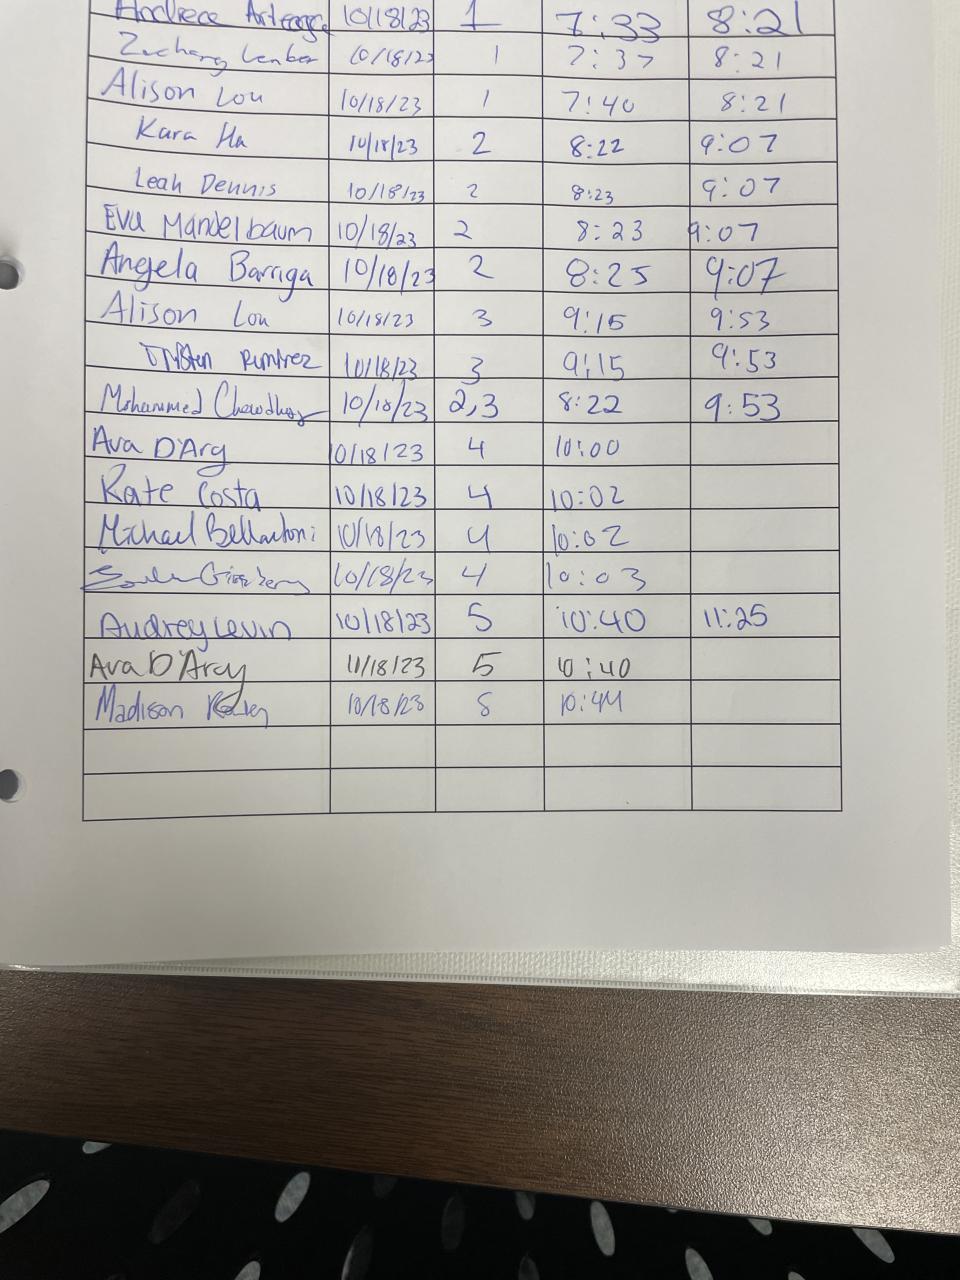 Andrea Arteaga 10/18/23 1 7:33 8:21
Zachary 10/18/23 1 7:37 8:21
Alison Lou 10/18/23 1 7:40 8:21
Kara Ha 10/18/23 2 8:22 9:07
Leah Dennis 10/18/23 2 8:23 9:07
Eva Mandelbaum 10/18/23 2 8:23 9:07
Angela Barriga 10/18/23 2 8:25 9:07
Alison Lou 10/18/23 3 9:15 9:53
Ramirez 10/18/23 3 9:15 9:53
Mohammed Chowdhury 10/18/23 2,3 8:22 9:53
Ava D'Arcy 10/18/23 4 10:00
Kate Costa 10/18/23 4 10:02
Michael Bellantoni 10/18/23 4 10:02
10/18/23 4 10:03
Audrey Levin 10/18/23 5 10:40 11:25
Ava D'Arcy 11/18/23 5 10:40
Madison 10/18/23 5 10:44